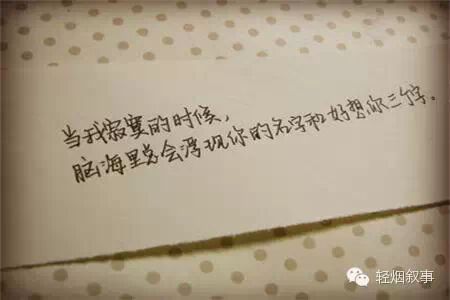 当我寂寞的时候，
脑海里总会浮现你的名字和好想你三个字。
轻烟叙事